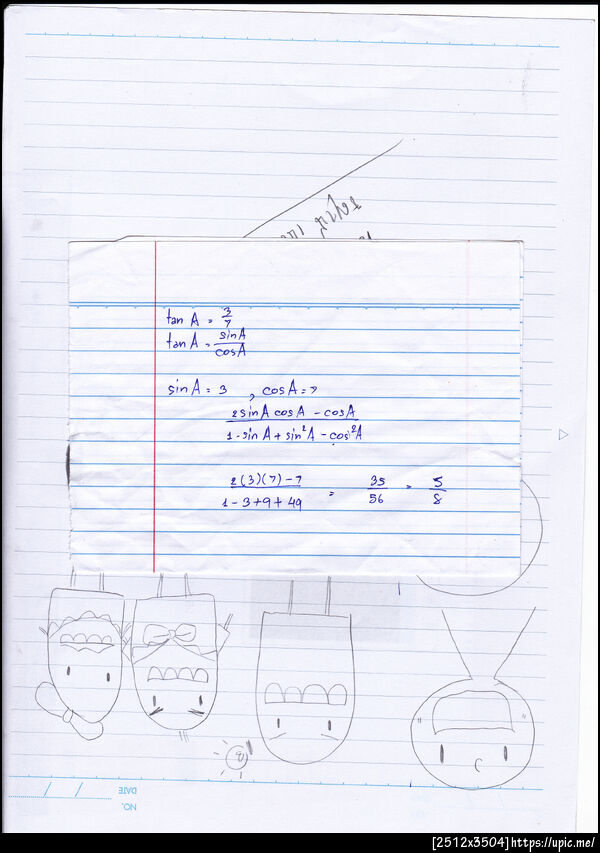 tan A = 3/7
tan A = sinA/cosA
sin A = 3 , cosA = 7
2 sinA cosA - cosA
1 - sin A + sin²A - cos²A
2(3)(7) - 7 / 1 - 3 + 9 + 49 = 35/56 = 5/8
NO.
DATE / /
[2512x3504]https://upic.me/